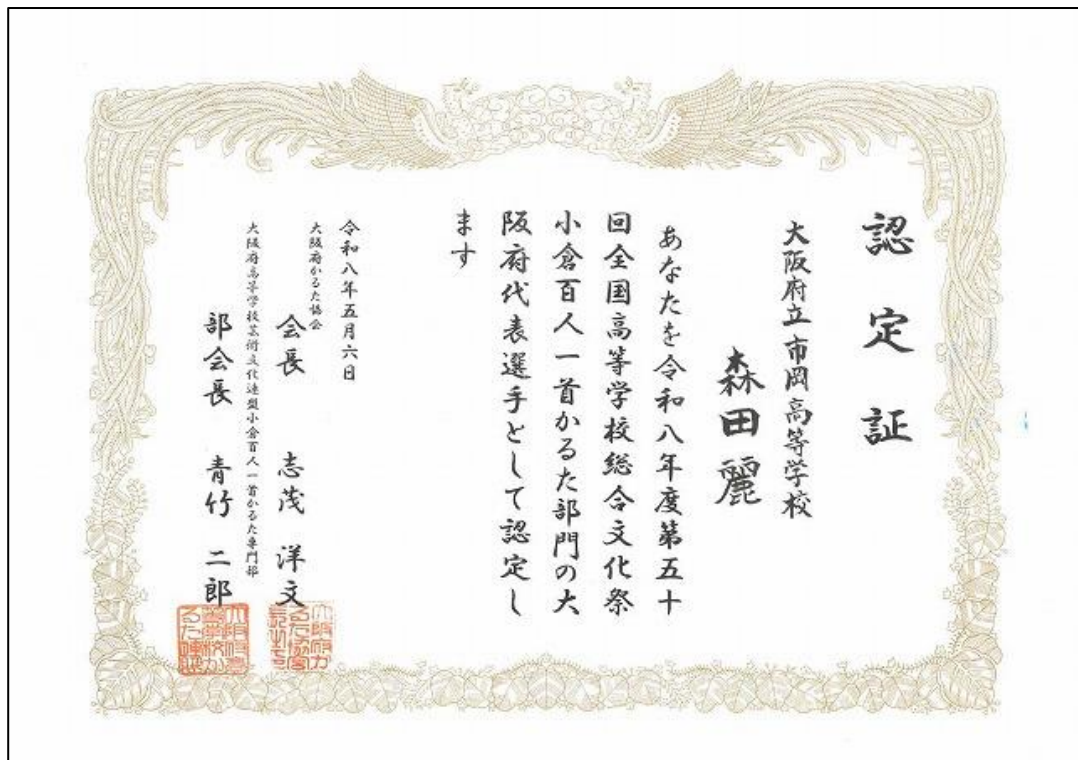 認定証
大阪府立市岡高等学校
森田麗
あなたを令和八年度第五十
回全国高等学校総合文化祭
小倉百人一首かるた部門の大
阪府代表選手として認定し
ます
令和八年五月六日
大阪府かるた協会
会長 志茂 洋文
大阪府高等学校芸術文化連盟小倉百人一首かるた専門部
部会長 青竹 二郎